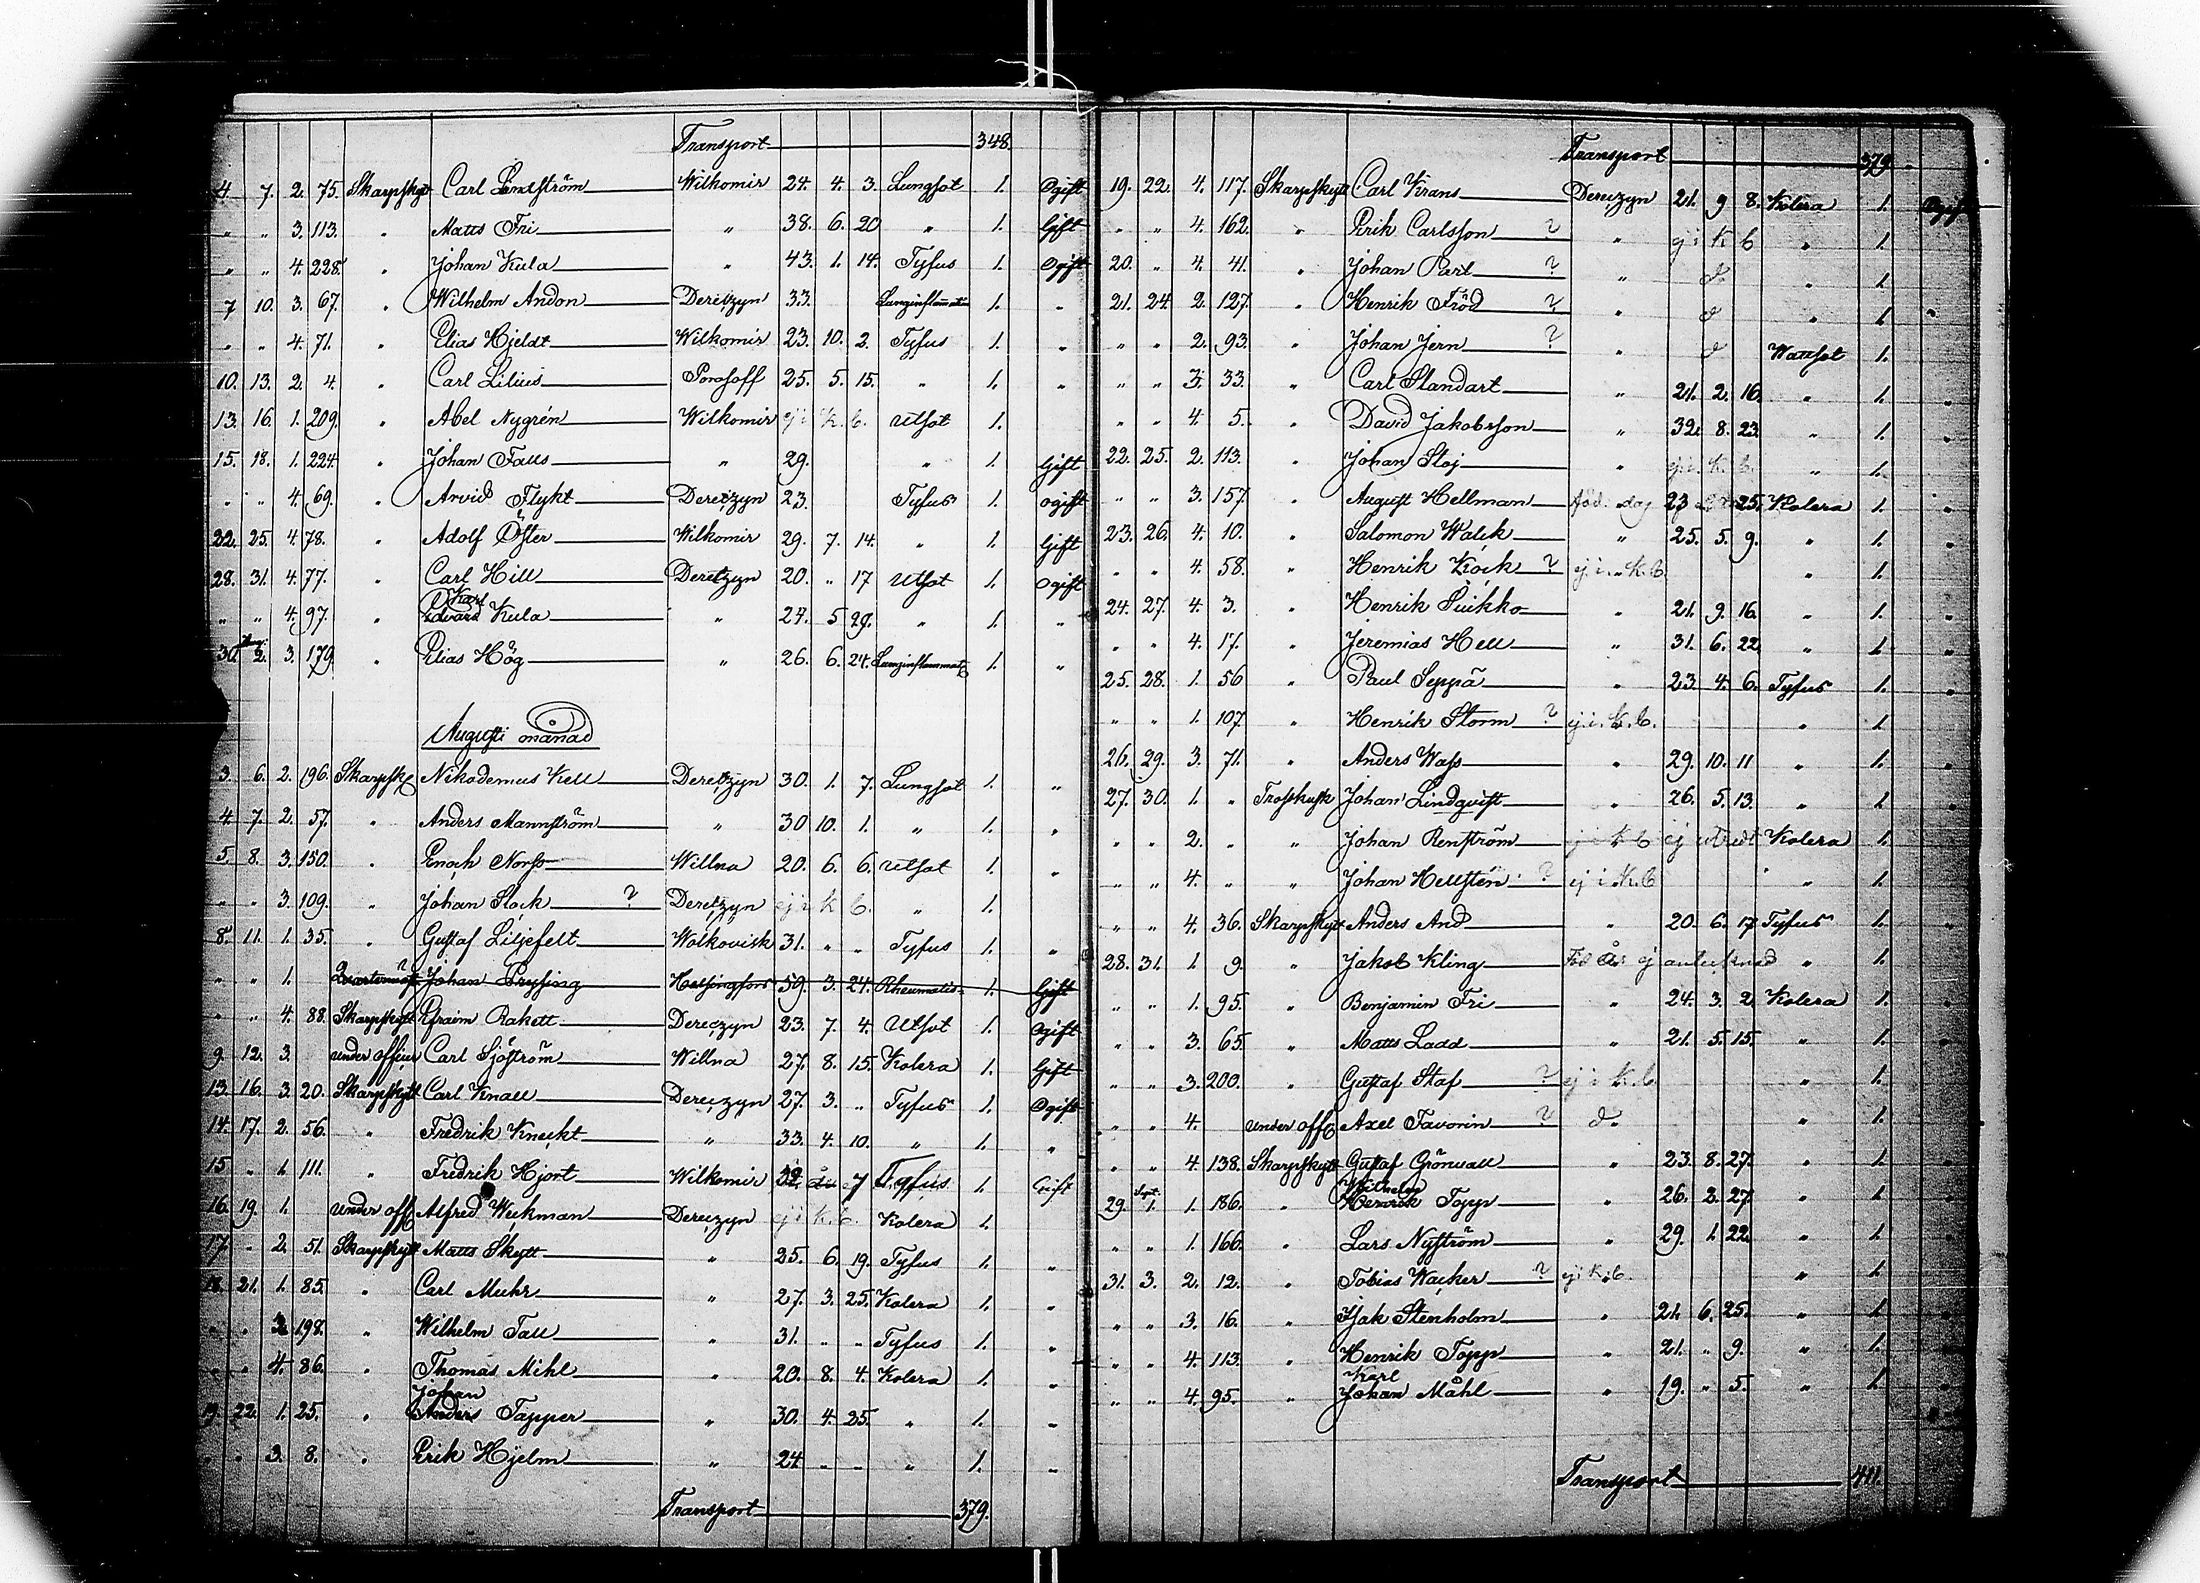 Transport 348.
4. 7. 2. 75. Skarpskytt Carl Lindström Wilkomir 24. 4. 3. Lungsot 1. Ogift
" " 3. 113. " Matts Fri " 38. 6. 20 " 1. Gift
" " 4. 228. " Johan Kula " 43. 1. 14. Tyfus 1. Ogift
7 10. 3. 67. " Wilhelm Andon Deretzyn 33. Lunginflammation 1. "
" " 4. 71. " Elias Hjeldt Wilkomir 23. 10. 2. Tyfus 1. "
10. 13. 2. 4. " Carl Lilius Porosoff 25. 5. 15. " 1. "
13. 16. 1. 209. " Abel Nygrén Wilkomir ej i K. b. Utsot 1.
15. 18. 1. 224. " Johan Falls " 29. " 1. Gift
" " 4. 69. " Arvid Flykt Dereczyn 23. Tyfus 1. ogift
22. 25. 4. 78. " Adolf Öster Wilkomir 29. 7. 14. " 1. Gift
28. 31. 4. 77. " Carl Hill Deretzyn 20. " 17 Utsot 1. Ogift
Karl
" " 4. 97. " Edvard Kula " 24. 5 29. " 1. "
30. Aug. 2. 3. 179 " Elias Hög " 26. 6. 24. Lunginflammat 1. "
Augusti månad
3. 6. 2. 196. Skarpsk Nikodemus Kell Deretzyn 30. 1. 7. Lungsot 1. "
4. 7. 2. 57. " Anders Mannström " 30 10. 1. " 1. "
5. 8. 3. 150. " Enoch Norss Willna 20. 6. 6. Utsot 1. "
" " 3. 109. " Johan Stock ? Deretzyn ej i K b. " 1.
8. 11. 1. 35. " Gustaf Liljefelt Wolkovisk 31. " " Tyfus 1. "
" " 1. Johan Pryssing Helsingfors 59. 3. 24. Rheumatis 1. Gift
" " 4. 88. Skarpskytt Efraim Rakett Dereczyn 23. 7. 4. Utsot 1. Ogift
9. 12. 3. under officer Carl Sjöström Willna 27. 8. 15. Kolera 1. Gift
13. 16. 3. 20. Skarpskytt Carl Knall Dereczyn 27. 3. " Tyfus 1. Ogift
14. 17. 2. 56. " Fredrik Kneckt " 33. 4. 10. " 1. "
15 " 1. 111. " Fredrik Hjort Wilkomir 32. 7 Tyfus 1. Gift
16. 19. 1. under off Alfred Wickman Dereczyn ej i K. b. Kolera 1.
17. " 2. 51. Skarpskytt Matts Skytt " 25. 6. 19. Tyfus 1. "
18. 21. 1. 85. " Carl Muhr " 27. 3. 25. Kolera 1. "
" " 3. 198. " Wilhelm Tall " 31. " " Tyfus 1. "
" " 4. 86. " Thomas Mihl " 20. 8. 4. Kolera 1. "
Johan
19. 22. 1. 25. " Anders Tapper " 30. 4. 25. " 1. "
" " 3. 8. " Erik Hjelm " 24 " " " 1. "
Transport 379.
Transport 379
19. 22. 4. 117. Skarpskytt Carl Krans Dereczyn 21. 9 8. Kolera 1. Ogift
" " 4. 162. " Erik Carlsson ? " ej i K b " 1.
20. " 4. 41. " Johan Parl ? " d " 1.
21. 24. 2. 127. " Henrik Fröd ? " d " 1.
" " 2. 93. " Johan Jern ? " d Wattsot 1.
" " 3. 33. " Carl Standart " 21. 2. 16. " 1. "
" " 4. 5. " David Jakobsson " 32. 8. 23. " 1. "
22. 25. 2. 113. " Johan Stoj " ej i K. b. " 1.
" " 3. 157. " August Hellman föd. dag 23 25. Kolera 1. "
23. 26. 4. 10. " Salomon Walck " 25. 5. 9. " 1. "
" " 4. 58. " Henrik Kock ? ej i K. b. " 1.
24. 27. 4. 3. " Henrik Suikko " 21. 9. 16. " 1. "
" " 4. 17. " Jeremias Hell " 31. 6. 22 " 1. "
25. 28. 1. 56 " Paul Seppä " 23. 4. 6. Tyfus 1. "
" " 1. 107 " Henrik Storm ? ej i K. b. " 1.
26. 29. 3. 71. " Anders Wass " 29. 10. 11 " 1. "
27. 30. 1. " Trosskusk Johan Lindqvist " 26. 5. 13. " 1. "
" " 2. " " Johan Renström ej i K b ej Kolera 1.
" " 4. " " Johan Hellstén ? ej i K. b " 1.
" " 4. 36. Skarpskytt Anders And " 20. 6. 17 Tyfus 1. "
28. 31. 1. 9. " Jakob Kling Föd år ej antecknad " 1. "
" " 1. 95. " Benjamin Fri " 24. 3. 2. Kolera 1. "
" " 3. 65. " Matts Ladd " 21. 5. 15. " 1. "
" " 3. 200. " Gustaf Staf ? ej i K. b " 1.
" " 4. under off Axel Favorin ? d. " 1.
" " 4. 138. Skarpskytt Gustaf Grönvall " 23. 8. 27. " 1. "
Wilhelm
29. Sept. 1. 1. 186. " Henrik Topp " 26. 2. 27. " 1. "
" " 1. 166. " Lars Nyström " 29. 1. 22. " 1. "
31. 3. 2. 12. " Tobias Wacker ? ej i K. b. " 1.
" " 3. 16. " Isak Stenholm " 21. 6. 25. " 1. "
" " 4. 113. " Henrik Topp " 21. " 9. " 1. "
Karl
" " 4. 95. " Johan Måhl " 19. " 5. " 1. "
Transport 411.